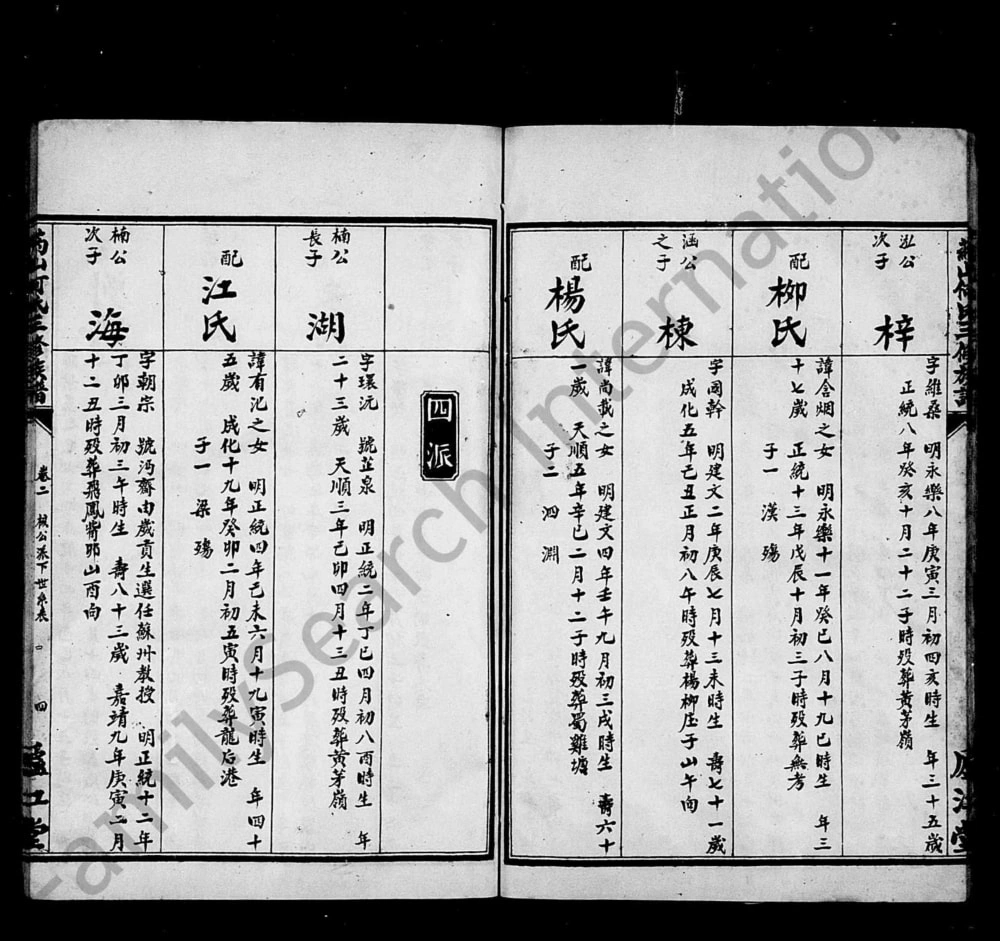 泓公
次子
梓
字維桑 明永樂八年庚寅三月初四亥時生 年三十五歲
正統八年癸亥十月二十二子時歿葬黃茅嶺
配
柳氏
諱含烟之女 明永樂十一年癸巳八月十九巳時生 年三
十七歲 正統十三年戊辰十月初三子時歿葬無考
子一 漢 殤
涵公
之子
棟
字國幹 明建文二年庚辰七月十三未時生 壽七十一歲
成化五年己丑正月初八午時歿葬楊柳庄子山午向
配
楊氏
諱尚載之女 明建文四年壬午九月初三戌時生 壽六十
一歲 天順五年辛巳二月十二子時歿葬蜀雞塘
子二 泗 淵
四派
楠公
長子
湖
字環沅 號芷泉 明正統二年丁巳四月初八酉時生 年
二十三歲 天順三年己卯四月十三丑時歿葬黃茅嶺
配
江氏
諱有汜之女 明正統四年己未六月十九寅時生 年四十
五歲 成化十九年癸卯二月初五寅時歿葬龍后港
子一 梁 殤
楠公
次子
海
字朝宗 號沔齋由歲貢生選任蘇州教授 明正統十二年
丁卯三月初三午時生 壽八十三歲 嘉靖九年庚寅二月
十二丑時歿葬飛鳳嘴卯山酉向
卷二 公派下世系表 四
FamilySearch International